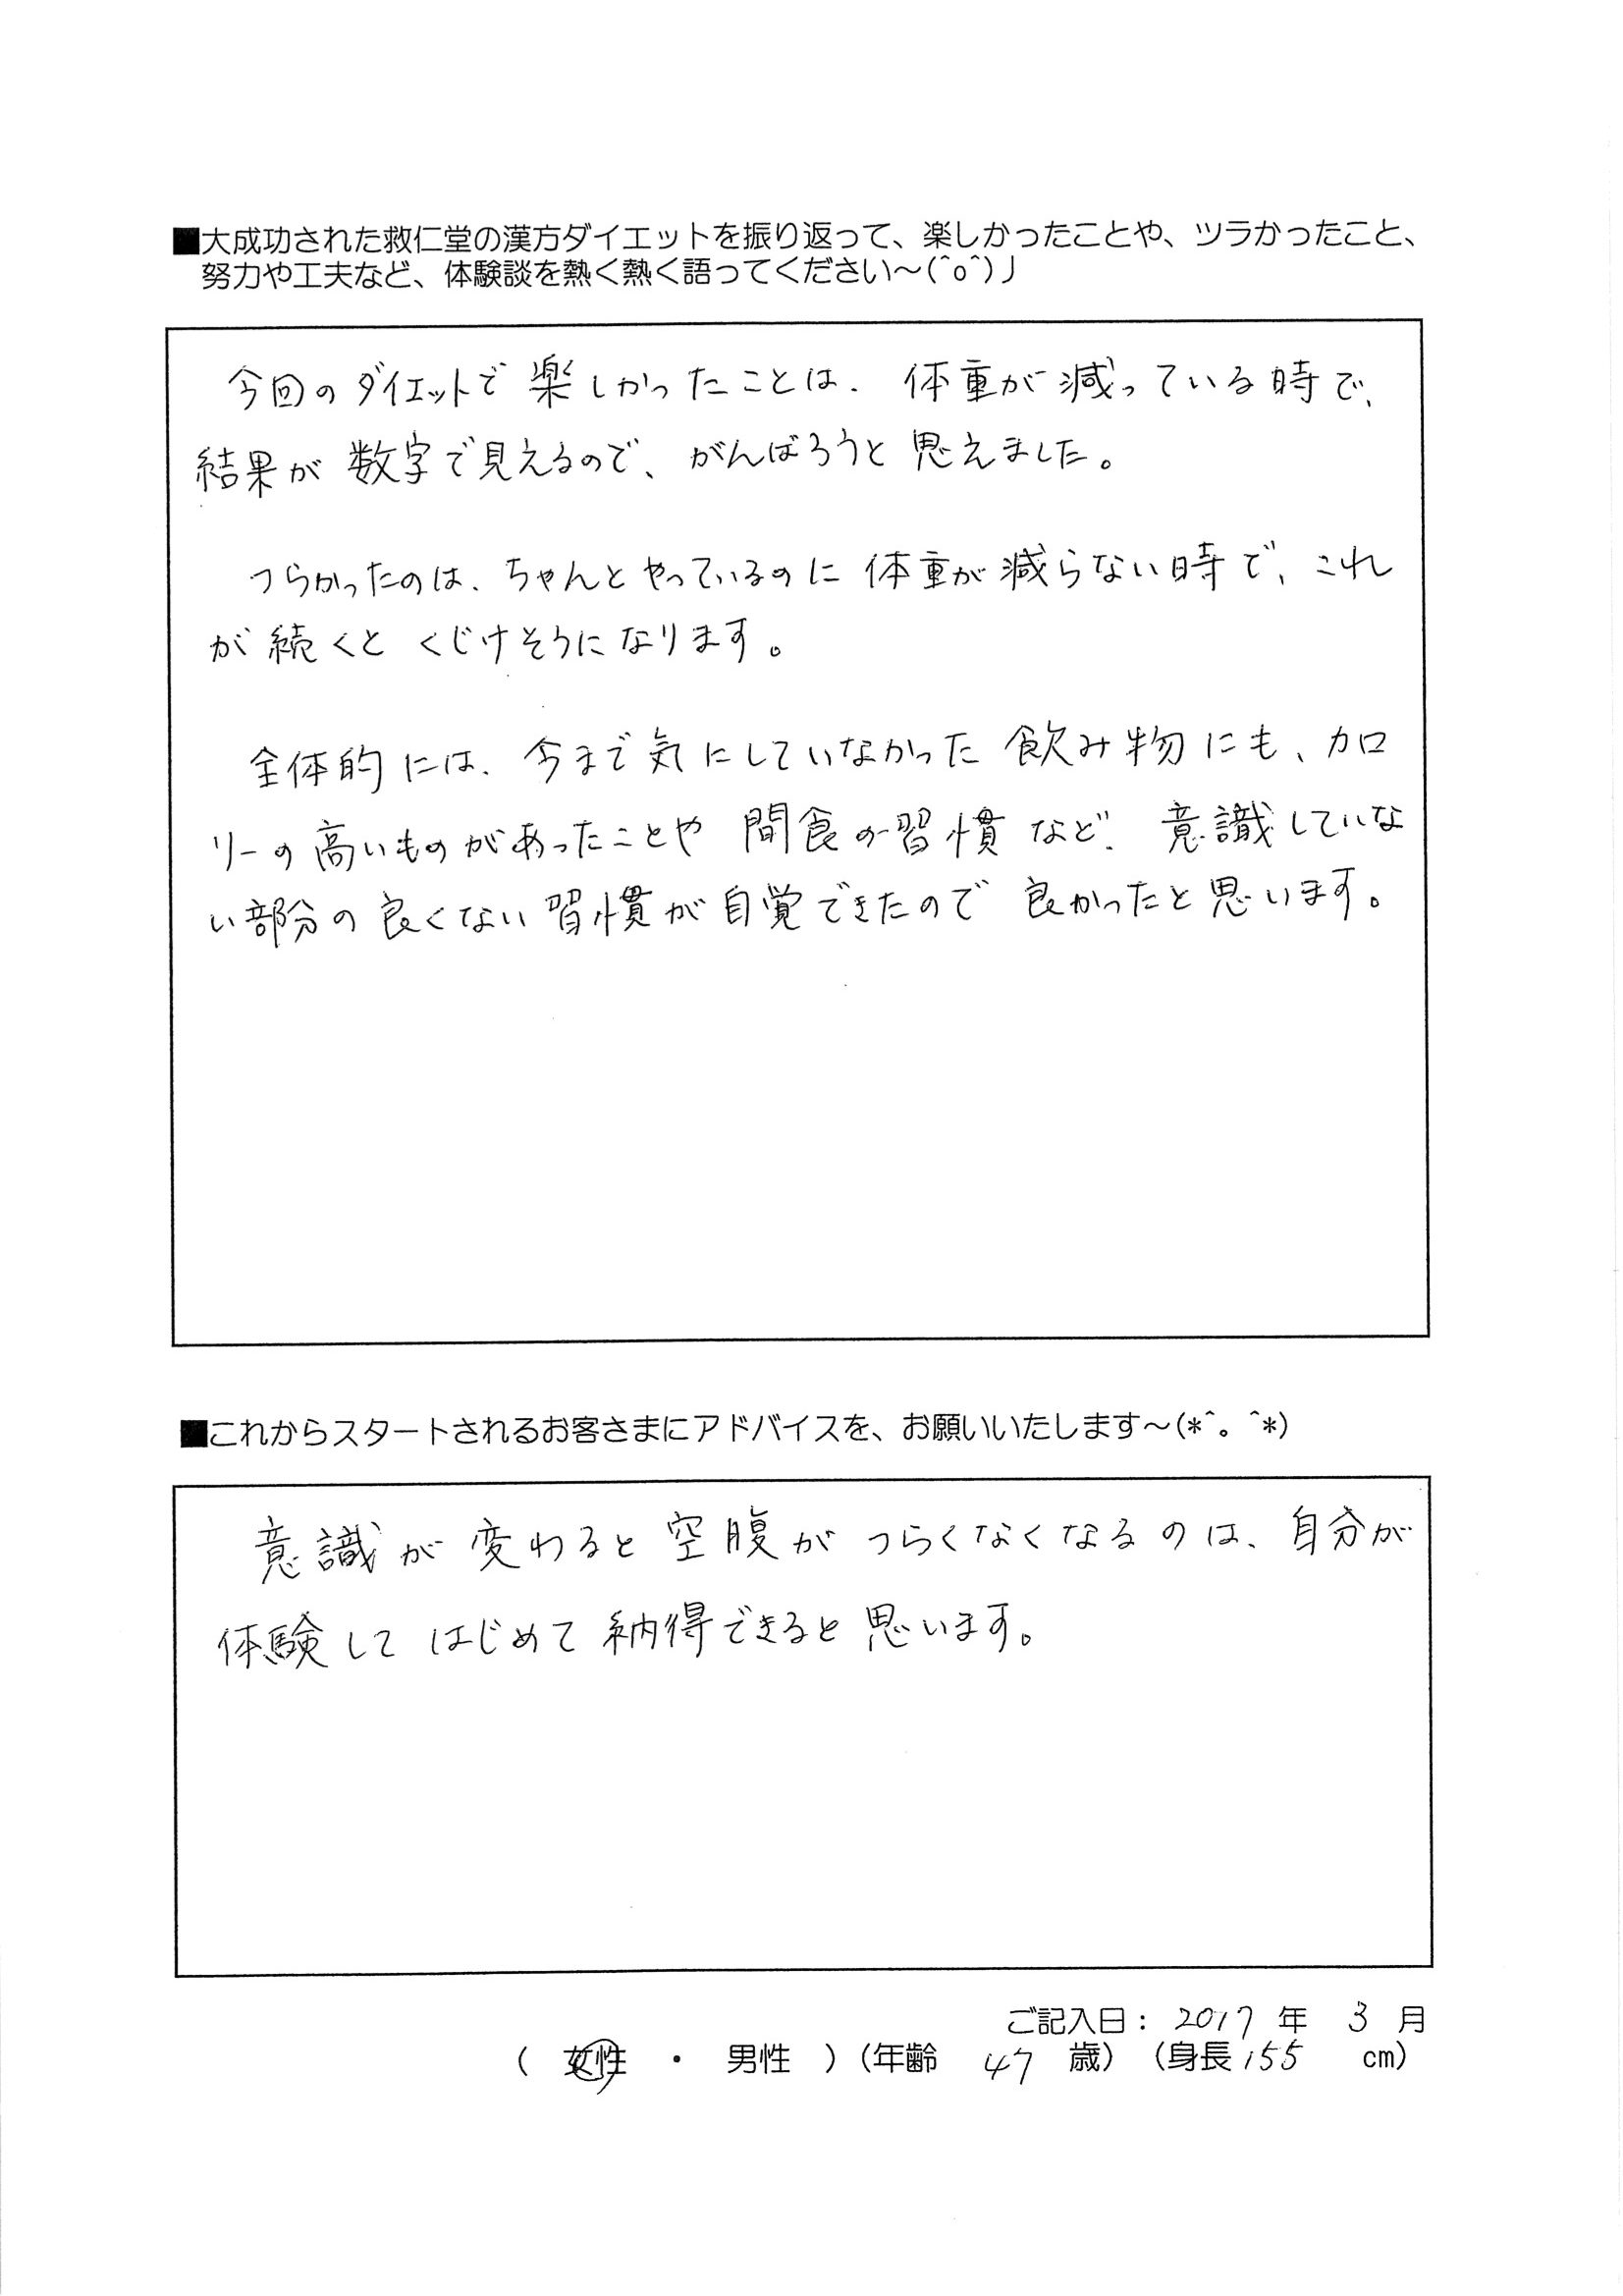 ■大成功された救仁堂の漢方ダイエットを振り返って、楽しかったことや、ツラかったこと、
努力や工夫など、体験談を熱く熱く語ってください～(^o^)丿
今回のダイエットで楽しかったことは、体重が減っている時で、
結果が数字で見えるので、がんばろうと思えました。
つらかったのは、ちゃんとやっているのに体重が減らない時で、これ
が続くとくじけそうになります。
全体的には、今まで気にしていなかった飲み物にも、カロ
リーの高いものがあったことや間食の習慣など、意識していな
い部分の良くない習慣が自覚できたので良かったと思います。
■これからスタートされるお客さまにアドバイスを、お願いいたします～(*^。^*)
意識が変わると空腹がつらくなくなるのは、自分が
体験してはじめて納得できると思います。
ご記入日：2017年 3月
（ 女性 ・ 男性 ）（年齢 47 歳）（身長 155 cm）